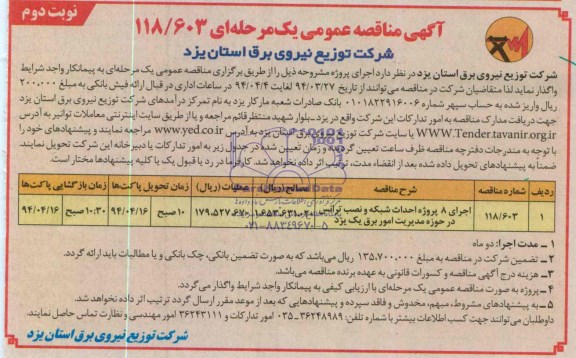 نوبت دوم
آگهی مناقصه عمومی یک‌مرحله‌ای ۱۱۸/۶۰۳
شرکت توزیع نیروی برق استان یزد
شرکت توزیع نیروی برق استان یزد در نظر دارد اجرای پروژه مشروحه ذیل را از طریق برگزاری مناقصه عمومی یک مرحله‌ای به پیمانکار واجد شرایط
واگذار نماید لذا متقاضیان شرکت در مناقصه می‌توانند از تاریخ ۹۴/۰۳/۲۷ لغایت ۹۴/۰۴/۴ در ساعات اداری در قبال ارائه فیش بانکی به مبلغ ۲۰۰.۰۰۰
ریال واریز شده به حساب سپهر شماره ۰۱۰۱۸۲۲۹۱۶۰۰۶ بانک صادرات شعبه مارکار یزد به نام تمرکز درآمدهای شرکت توزیع نیروی برق استان یزد
جهت دریافت مدارک مناقصه به امور تدارکات این شرکت واقع در یزد-بلوار شهید منتظرقائم مراجعه و یا از طریق سایت اینترنتی معاملات توانیر به آدرس
WWW.Tender.tavanir.org.ir یا سایت شرکت توزیع نیروی برق استان یزد به آدرس www.yed.co.ir مراجعه نمایند و پیشنهادهای خود را
با توجه به مندرجات دفترچه مناقصه ظرف ساعت تعیین گردیده و زمان تعیین شده در جدول زیر به امور تدارکات یا دبیرخانه این شرکت تحویل نمایند.
ضمناً به پیشنهادهای تحویل داده شده بعد از انقضاء مدت، ترتیب اثر داده نخواهد شد. کارفرما در رد یا قبول یک یا کلیه پیشنهادها مختار است.
ردیف شماره مناقصه شرح مناقصه مصالح(ریال) عملیات (ریال) زمان تحویل پاکت‌ها زمان بازگشایی پاکت‌ها
۱ ۱۱۸/۶۰۳ اجرای ۸ پروژه احداث شبکه و نصب ترانس ۱۰صبح ۹۴/۰۴/۱۶ ۱۰:۳۰صبح ۹۴/۰۴/۱۶
در حوزه مدیریت امور برق یک یزد
۱ – مدت اجرا: دو ماه
۲– تضمین شرکت در مناقصه به مبلغ ۱۳۵.۷۰۰.۰۰۰ ریال می‌باشد که به صورت تضمین بانکی، چک بانکی و یا مطالبات باید ارائه گردد.
۳– هزینه درج آگهی مناقصه و کسورات قانونی به عهده برنده مناقصه می‌باشد.
۴–پروژه به صورت مناقصه عمومی یک مرحله‌ای با ارزیابی کیفی به پیمانکار واجد شرایط واگذار می‌گردد.
۵– به پیشنهادهای مشروط، مبهم، مخدوش و فاقد سپرده و پیشنهادهایی که بعد از موعد مقرر ارسال گردد ترتیب اثر داده نخواهد شد.
داوطلبان می‌توانند جهت کسب اطلاعات بیشتر با شماره تلفن: ۳۶۲۴۸۹۸۹-۰۳۵ امور تدارکات و ۳۶۲۴۳۱۱۱ امور مهندسی و نظارت تماس حاصل نمایند.
شرکت توزیع نیروی برق استان یزد